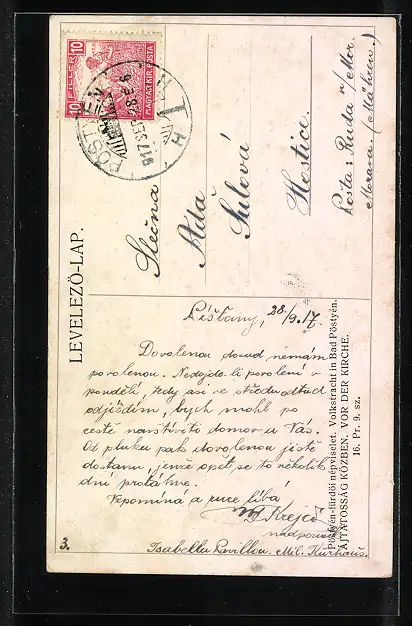 LEVELEZŐ-LAP.
10 FILLER 10
MAGYAR KIR. POSTA
PÖSTYÉN
917 SEP
Slečna
Aďa
Sulová
Hostice
Pošta: Ruda n/Mor.
Morava. (Mähren.)
Píšťany, 28/9.17.
Dovolenou dosud nemám
povolenou. Nedojde-li povolení v
pondělí, tedy asi ve středu odtud
odjíždím, bych mohl po
cestě navštíviti domov a Vás.
Od pluku pak dovolenou jistě
dostanu, jenže opět se to několik
dní protáhne.
Vzpomíná a ruce líbá
Krejčí
Isabella Pavillon. Mil. Kurhaus.
3.
Pöstyén-fürdői népviselet. Volkstracht in Bad Pöstyén.
ÁJTATOSSÁG KÖZBEN. VOR DER KIRCHE.
16. Pr. 9. sz.